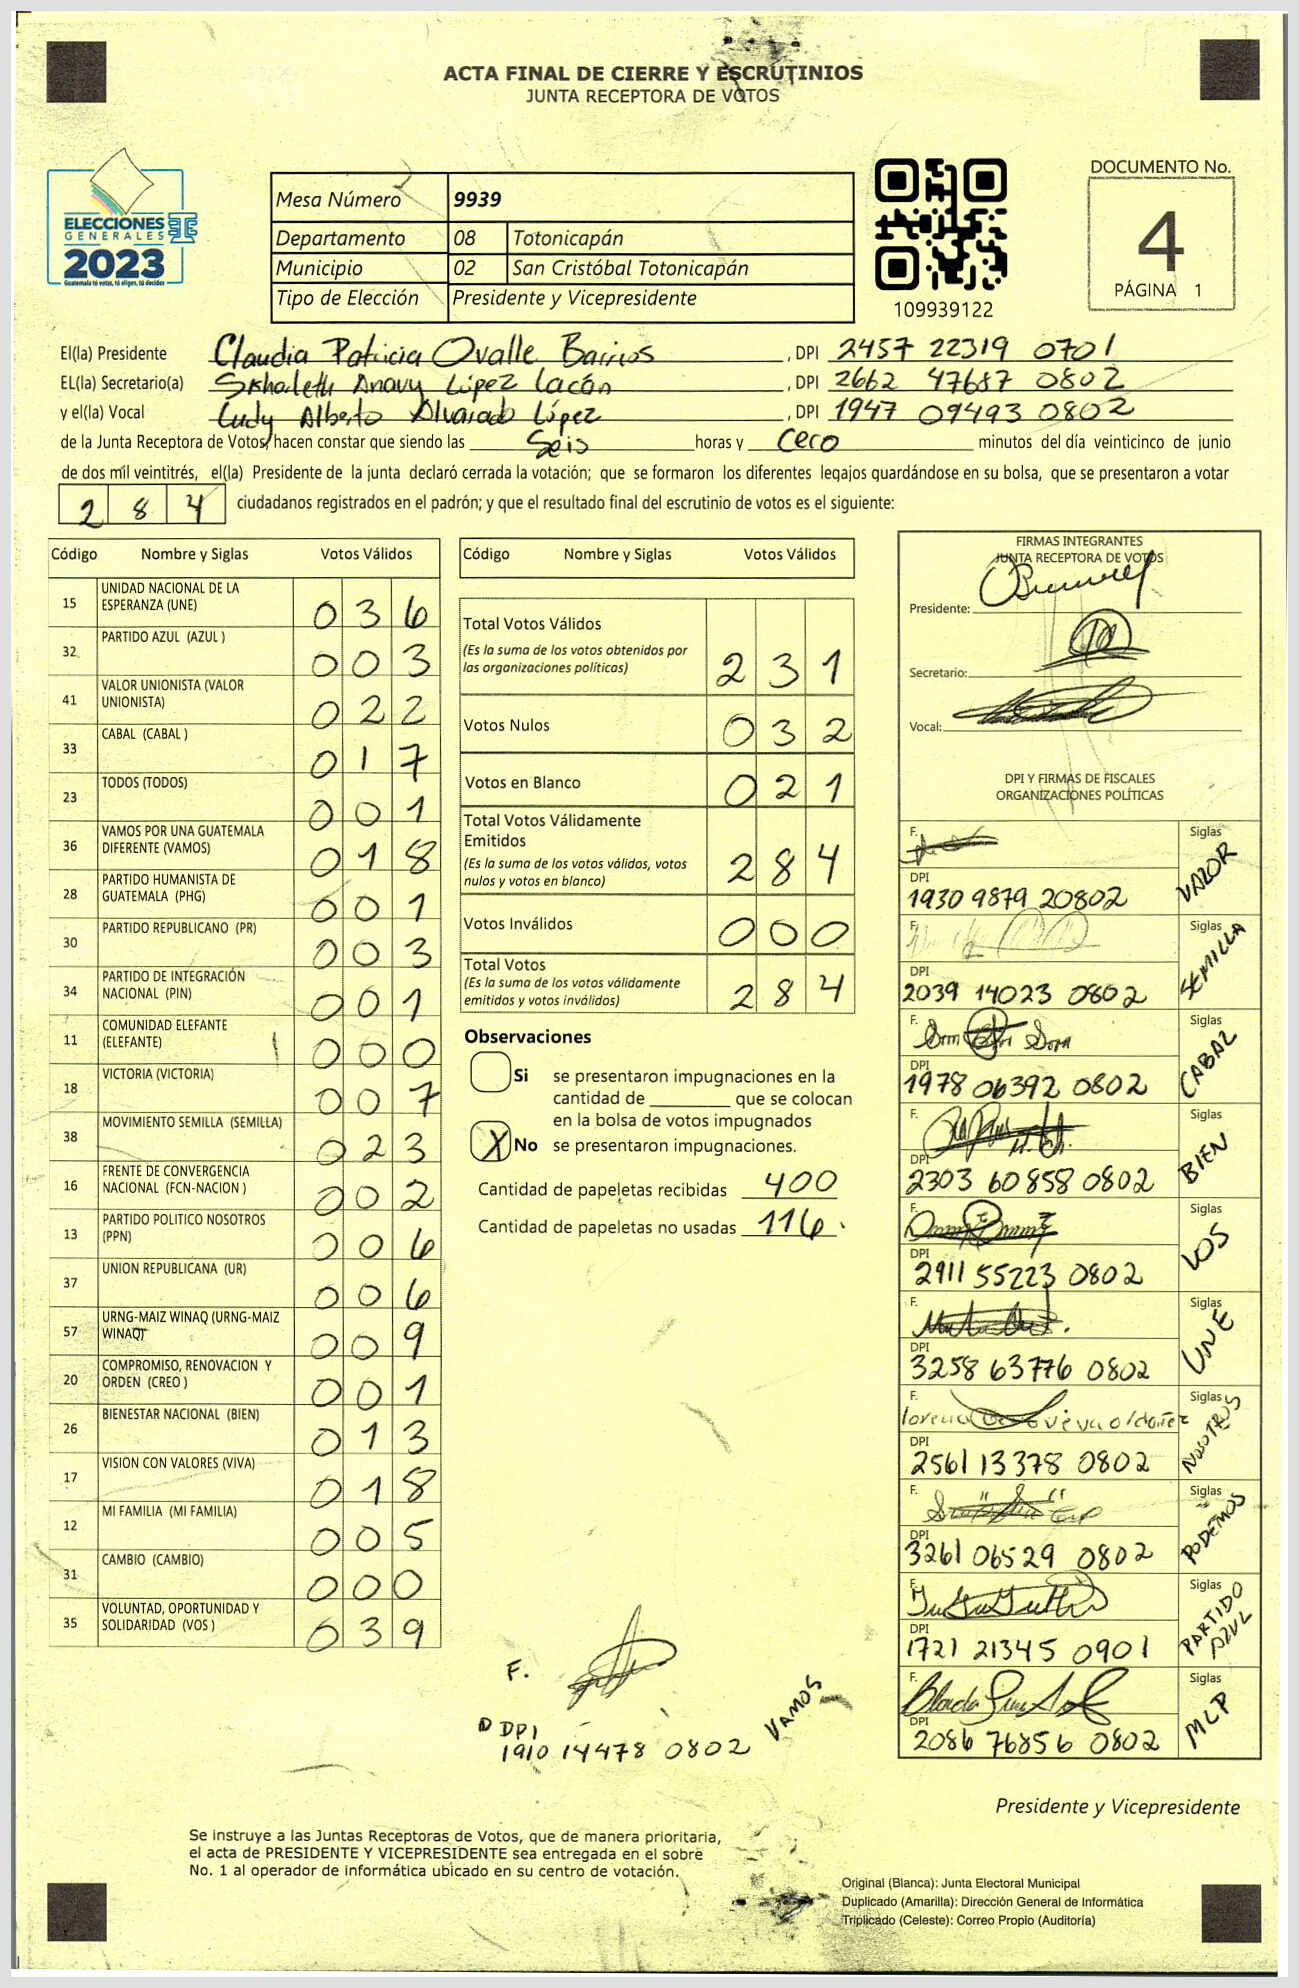 ACTA FINAL DE CIERRE Y ESCRUTINIOS
JUNTA RECEPTORA DE VOTOS
ELECCIONES
GENERALES
2023
Guatemala tú votas, tú eliges, tú decides
Mesa Número 9939
Departamento 08 Totonicapán
Municipio 02 San Cristóbal Totonicapán
Tipo de Elección Presidente y Vicepresidente
109939122
DOCUMENTO No.
4
PÁGINA 1
El(la) Presidente Claudia Patricia Ovalle Barrios, DPI 2457 22319 0701
EL(la) Secretario(a) Anavy López Lacán, DPI 2662 47687 0802
y el(la) Vocal Ludy Alberto Alvarado López, DPI 1947 09493 0802
de la Junta Receptora de Votos, hacen constar que siendo las Seis horas y cero minutos del día veinticinco de junio
de dos mil veintitrés, el(la) Presidente de la junta declaró cerrada la votación; que se formaron los diferentes legajos guardándose en su bolsa, que se presentaron a votar
284 ciudadanos registrados en el padrón; y que el resultado final del escrutinio de votos es el siguiente:
Código Nombre y Siglas Votos Válidos
15 UNIDAD NACIONAL DE LA ESPERANZA (UNE) 036
32 PARTIDO AZUL (AZUL ) 003
41 VALOR UNIONISTA (VALOR UNIONISTA) 022
33 CABAL (CABAL ) 017
23 TODOS (TODOS) 001
36 VAMOS POR UNA GUATEMALA DIFERENTE (VAMOS) 018
28 PARTIDO HUMANISTA DE GUATEMALA (PHG) 001
30 PARTIDO REPUBLICANO (PR) 003
34 PARTIDO DE INTEGRACIÓN NACIONAL (PIN) 001
11 COMUNIDAD ELEFANTE (ELEFANTE) 000
18 VICTORIA (VICTORIA) 007
38 MOVIMIENTO SEMILLA (SEMILLA) 023
16 FRENTE DE CONVERGENCIA NACIONAL (FCN-NACION ) 002
13 PARTIDO POLITICO NOSOTROS (PPN) 006
37 UNION REPUBLICANA (UR) 006
57 URNG-MAIZ WINAQ (URNG-MAIZ WINAQ) 009
20 COMPROMISO, RENOVACION Y ORDEN (CREO ) 001
26 BIENESTAR NACIONAL (BIEN) 013
17 VISION CON VALORES (VIVA) 018
12 MI FAMILIA (MI FAMILIA) 005
31 CAMBIO (CAMBIO) 000
35 VOLUNTAD, OPORTUNIDAD Y SOLIDARIDAD (VOS ) 039
Código Nombre y Siglas Votos Válidos
Total Votos Válidos 231
(Es la suma de los votos obtenidos por
las organizaciones políticas)
Votos Nulos 032
Votos en Blanco 021
Total Votos Válidamente
Emitidos 284
(Es la suma de los votos válidos, votos
nulos y votos en blanco)
Votos Inválidos 000
Total Votos 284
(Es la suma de los votos válidamente
emitidos y votos inválidos)
Observaciones
Si se presentaron impugnaciones en la
cantidad de ________ que se colocan
en la bolsa de votos impugnados
X No se presentaron impugnaciones.
Cantidad de papeletas recibidas 400
Cantidad de papeletas no usadas 116.
F.
DPI
1910 14478 0802
VAMOS
FIRMAS INTEGRANTES
JUNTA RECEPTORA DE VOTOS
Presidente:
Secretario:
Vocal:
DPI Y FIRMAS DE FISCALES
ORGANIZACIONES POLÍTICAS
F. Siglas VALOR
DPI
1930 9879 20802
F. Siglas SEMILLA
DPI
2039 14023 0802
F. Siglas CABAL
DPI
1978 06392 0802
F. Siglas BIEN
DPI
2303 60858 0802
F. Siglas VOS
DPI
2911 55223 0802
F. Siglas UNE
DPI
3258 63776 0802
F. Siglas NOSOTROS
DPI
2561 13378 0802
F. Siglas PODEMOS
DPI
3261 06529 0802
F. Siglas PARTIDO AZUL
DPI
1721 21345 0901
F. Siglas MLP
DPI
2086 76856 0802
Presidente y Vicepresidente
Se instruye a las Juntas Receptoras de Votos, que de manera prioritaria,
el acta de PRESIDENTE Y VICEPRESIDENTE sea entregada en el sobre
No. 1 al operador de informática ubicado en su centro de votación.
Original (Blanca): Junta Electoral Municipal
Duplicado (Amarilla): Dirección General de Informática
Triplicado (Celeste): Correo Propio (Auditoría)